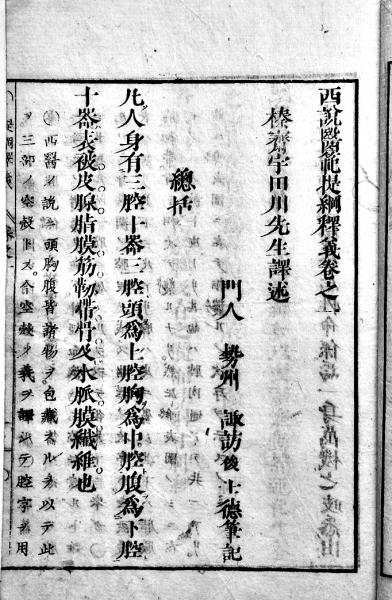 西說醫範提綱釋義卷之一
榛齋宇田川先生譯述
門人 勢州 諏訪俊士德筆記
總括
凡人身有三腔十器三腔頭爲上腔胸爲中腔腹爲下腔
十器表被皮腺脂膜筋靭帶骨及水脈膜纖維也
西醫ノ說ニ頭胸腹皆諸物ヲ包藏スル者ヲ以テ此
ヲ三部ノ空殼トス今空殼ノ義ヲ譯シテ腔字ヲ用